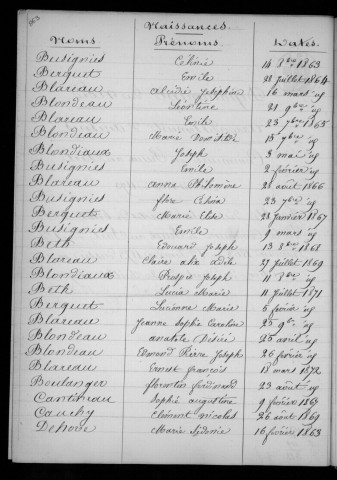 Naissances.
Noms Prénoms Dates.
Busignies Célinie 14 8bre 1863
Berquet Emile 28 Juillet 1864
Blareau Alcidie Joséphine 16 mars
Blondeau Léontine 21 9bre
Blareau Emile 23 7bre 1865
Blondeau Marie 15 9bre
Blondiaux Joseph 3 mai
Busignies Emile 2 février
Blareau anna Philomène 28 août 1866
Busignies flore 23 7bre
Berquet Marie Elise 28 Janvier 1867
Busignies Emile 9 mars
Beth Edouard Joseph 13 8bre 1868
Blareau Claire alix Odile 27 Juillet 1869
Blondiaux Joseph 11 8bre
Beth Lucia Marie 11 Juillet 1871
Berquet Lucienne Marie 6 février
Blareau Jeanne Sophie Caroline 25 9bre
Blondeau anatole Désiré 25 avril
Blondeau Edmond Pierre Joseph 26 février
Blareau Ernest françois 18 mars 1872
Boulanger florentin ferdinand 23 août
Cantineau Sophie augustine 9 février 1867
Cauchy Clément nicolas 26 août 1869
Dehove Marie Sidonie 16 février 1863